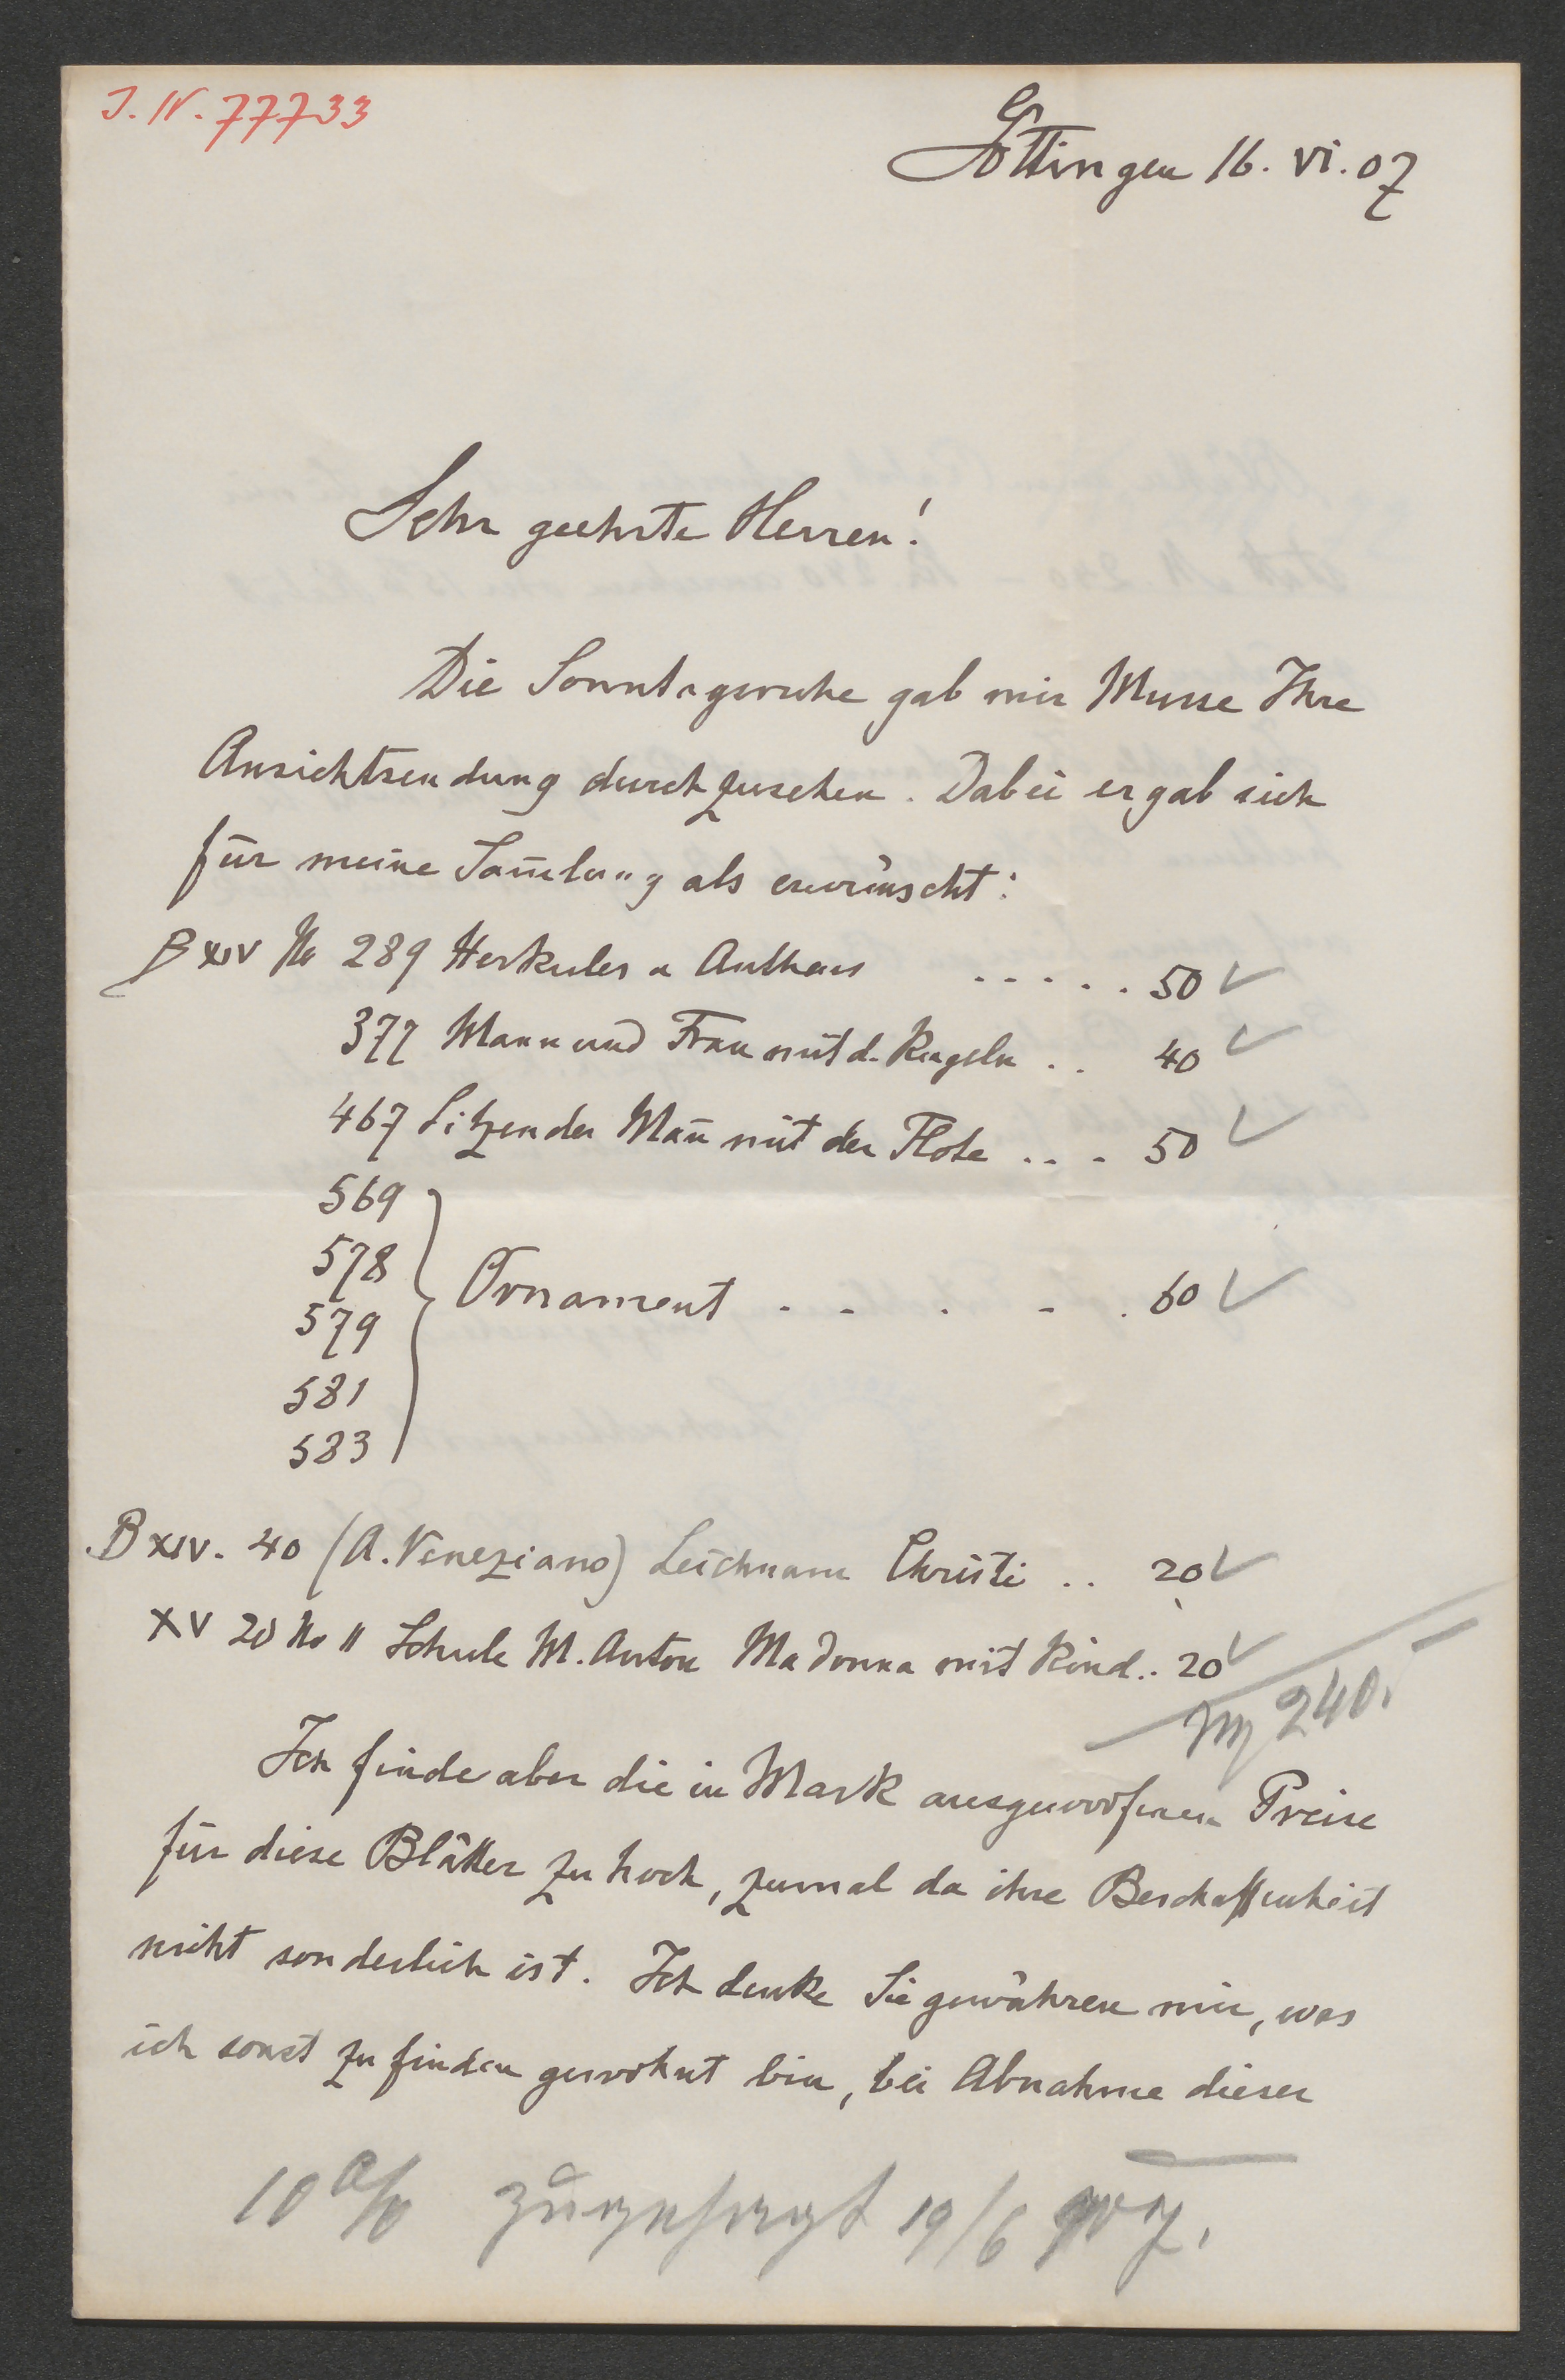 J. N. 77733
Göttingen 16. VI. 07
Sehr geehrte Herren!
Die Sonntagsruhe gab mir Musse Ihre
Ansichtsendung durchzusehen. Dabei ergab sich
für meine Sam̄lung als erwünscht:
B XIV No 289 Herkules u Anthaus ..... 50 ✓
377 Mann und Frau mit d. Kugeln .. 40 ✓
467 Sitzender Man̄ mit der Flöte ... 50 ✓
569
578
579 Ornament . - . - . 60 ✓
581
583
B XIV. 40 (A. Veneziano) Leichnam Christi .. 20 ✓
XV 20 No 11 Schule M. Anton Madonna mit Kind .. 20 ✓
M 240.
Ich finde aber die in Mark ausgeworfenen Preise
für diese Blätter zu hoch, zumal da ihre Beschaffenheit
nicht sonderlich ist. Ich denke Sie gewähren mir, was
ich sonst zu finden gewohnt bin, bei Abnahme dieser
10% zugesagt 19/6 907.